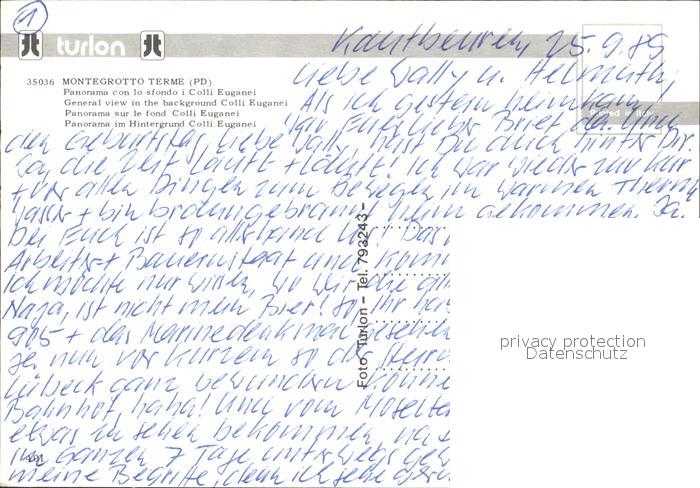 1
turlon
Kaufbeuren, 25.9.89
35036 MONTEGROTTO TERME (PD)
Panorama con lo sfondo i Colli Euganei
General view in the background Colli Euganei
Panorama sur le fond Colli Euganei
Panorama im Hintergrund Colli Euganei
Printed in Italy
Liebe Wally u. Helmuth,
Als ich gestern heimkam,
war Euer lieber Brief da. Und
den Geburtstag, liebe Wally, hast Du auch hinter Dir.
Ja, die Zeit läuft + läuft! Ich war wieder zur Kur
+ vor allen Dingen zum Bewegen im warmen Therm
wasser + bin braungebrannt heim gekommen. Ja,
bei Euch ist so allerhand Das
Arbeiter + Bauernstaat und
Ich möchte nur wissen, wo wir die
Naja, ist nicht mein Bier! So, Ihr
+ das Marinedenkmal gesehen
ja nun vor kurzem so
Lübeck ganz bewundern
Bahnhof, haha! Und vom
etwas zu sehen bekommen,
im ganzen 7 Tage unterwegs
meine Begriffe, denn ich sehe
Foto Turlon – Tel. 793243 –
privacy protection
Datenschutz